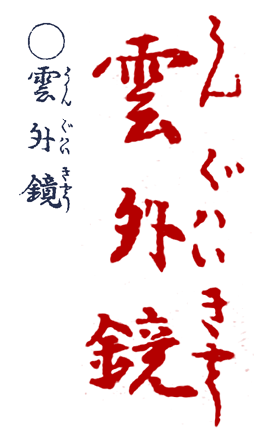 うんぐハいきやう
雲外鏡
うんぐハいきやう
○雲外鏡